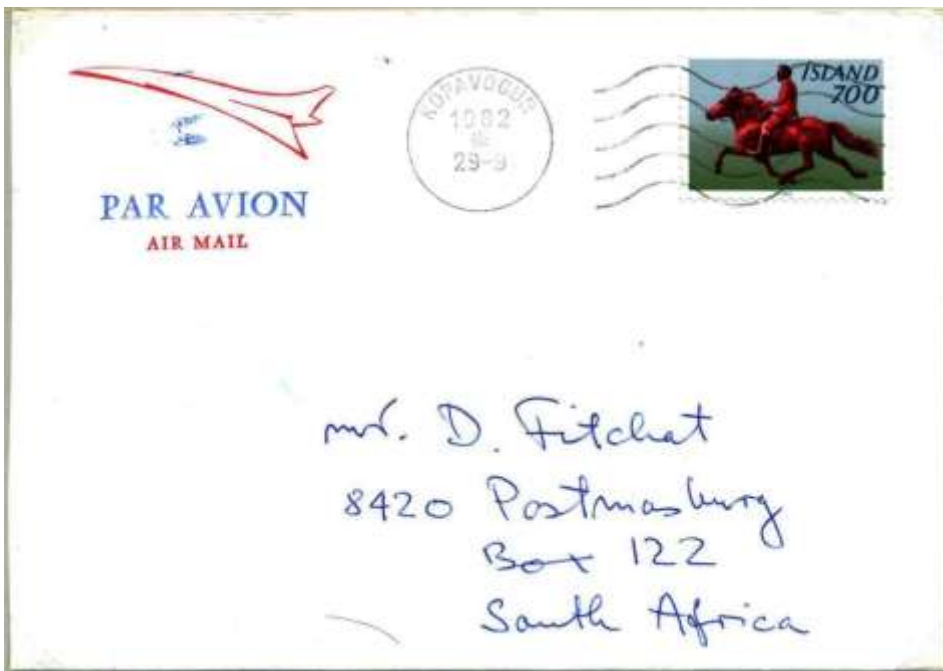 PAR AVION
AIR MAIL
KOPAVOGUR
1982
29-9
ÍSLAND
700
mr. D. Fitchat
8420 Postmasburg
Box 122
South Africa